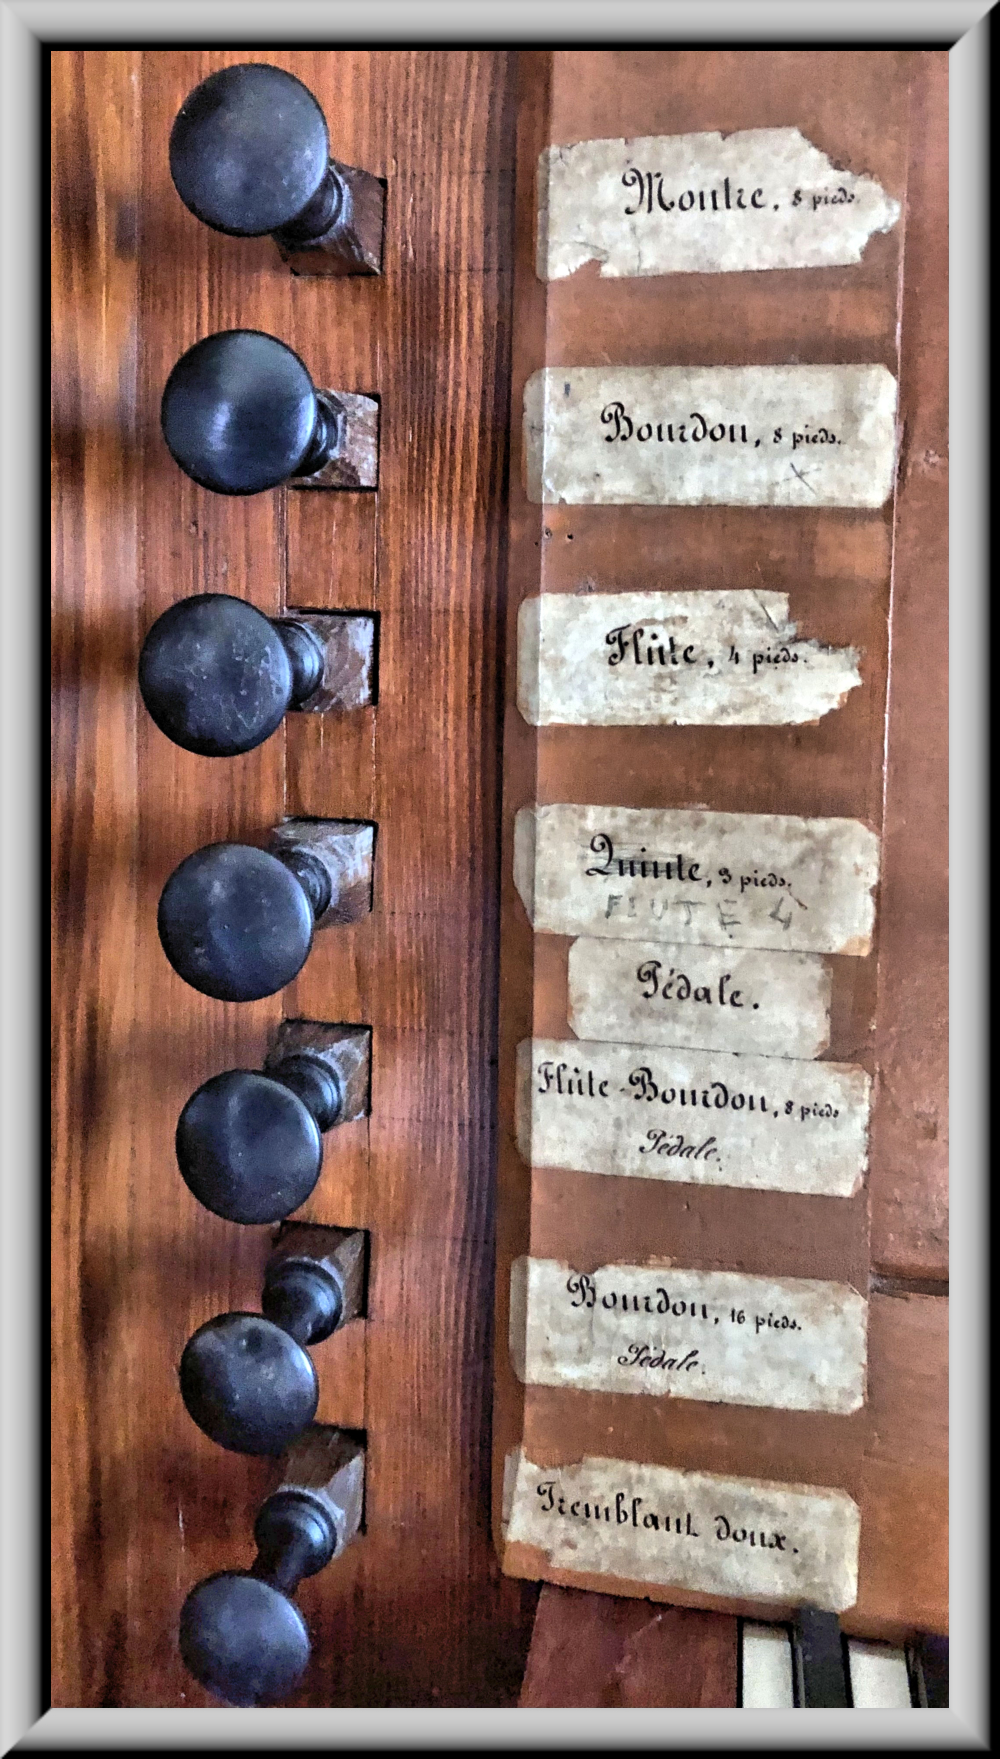 Montre, 8 pieds.
Bourdon, 8 pieds.
Flûte, 4 pieds.
Quinte, 3 pieds.
FLUTE 4
Pédale.
Flûte-Bourdon, 8 pieds
Pédale.
Bourdon, 16 pieds.
Pédale.
Tremblant doux.